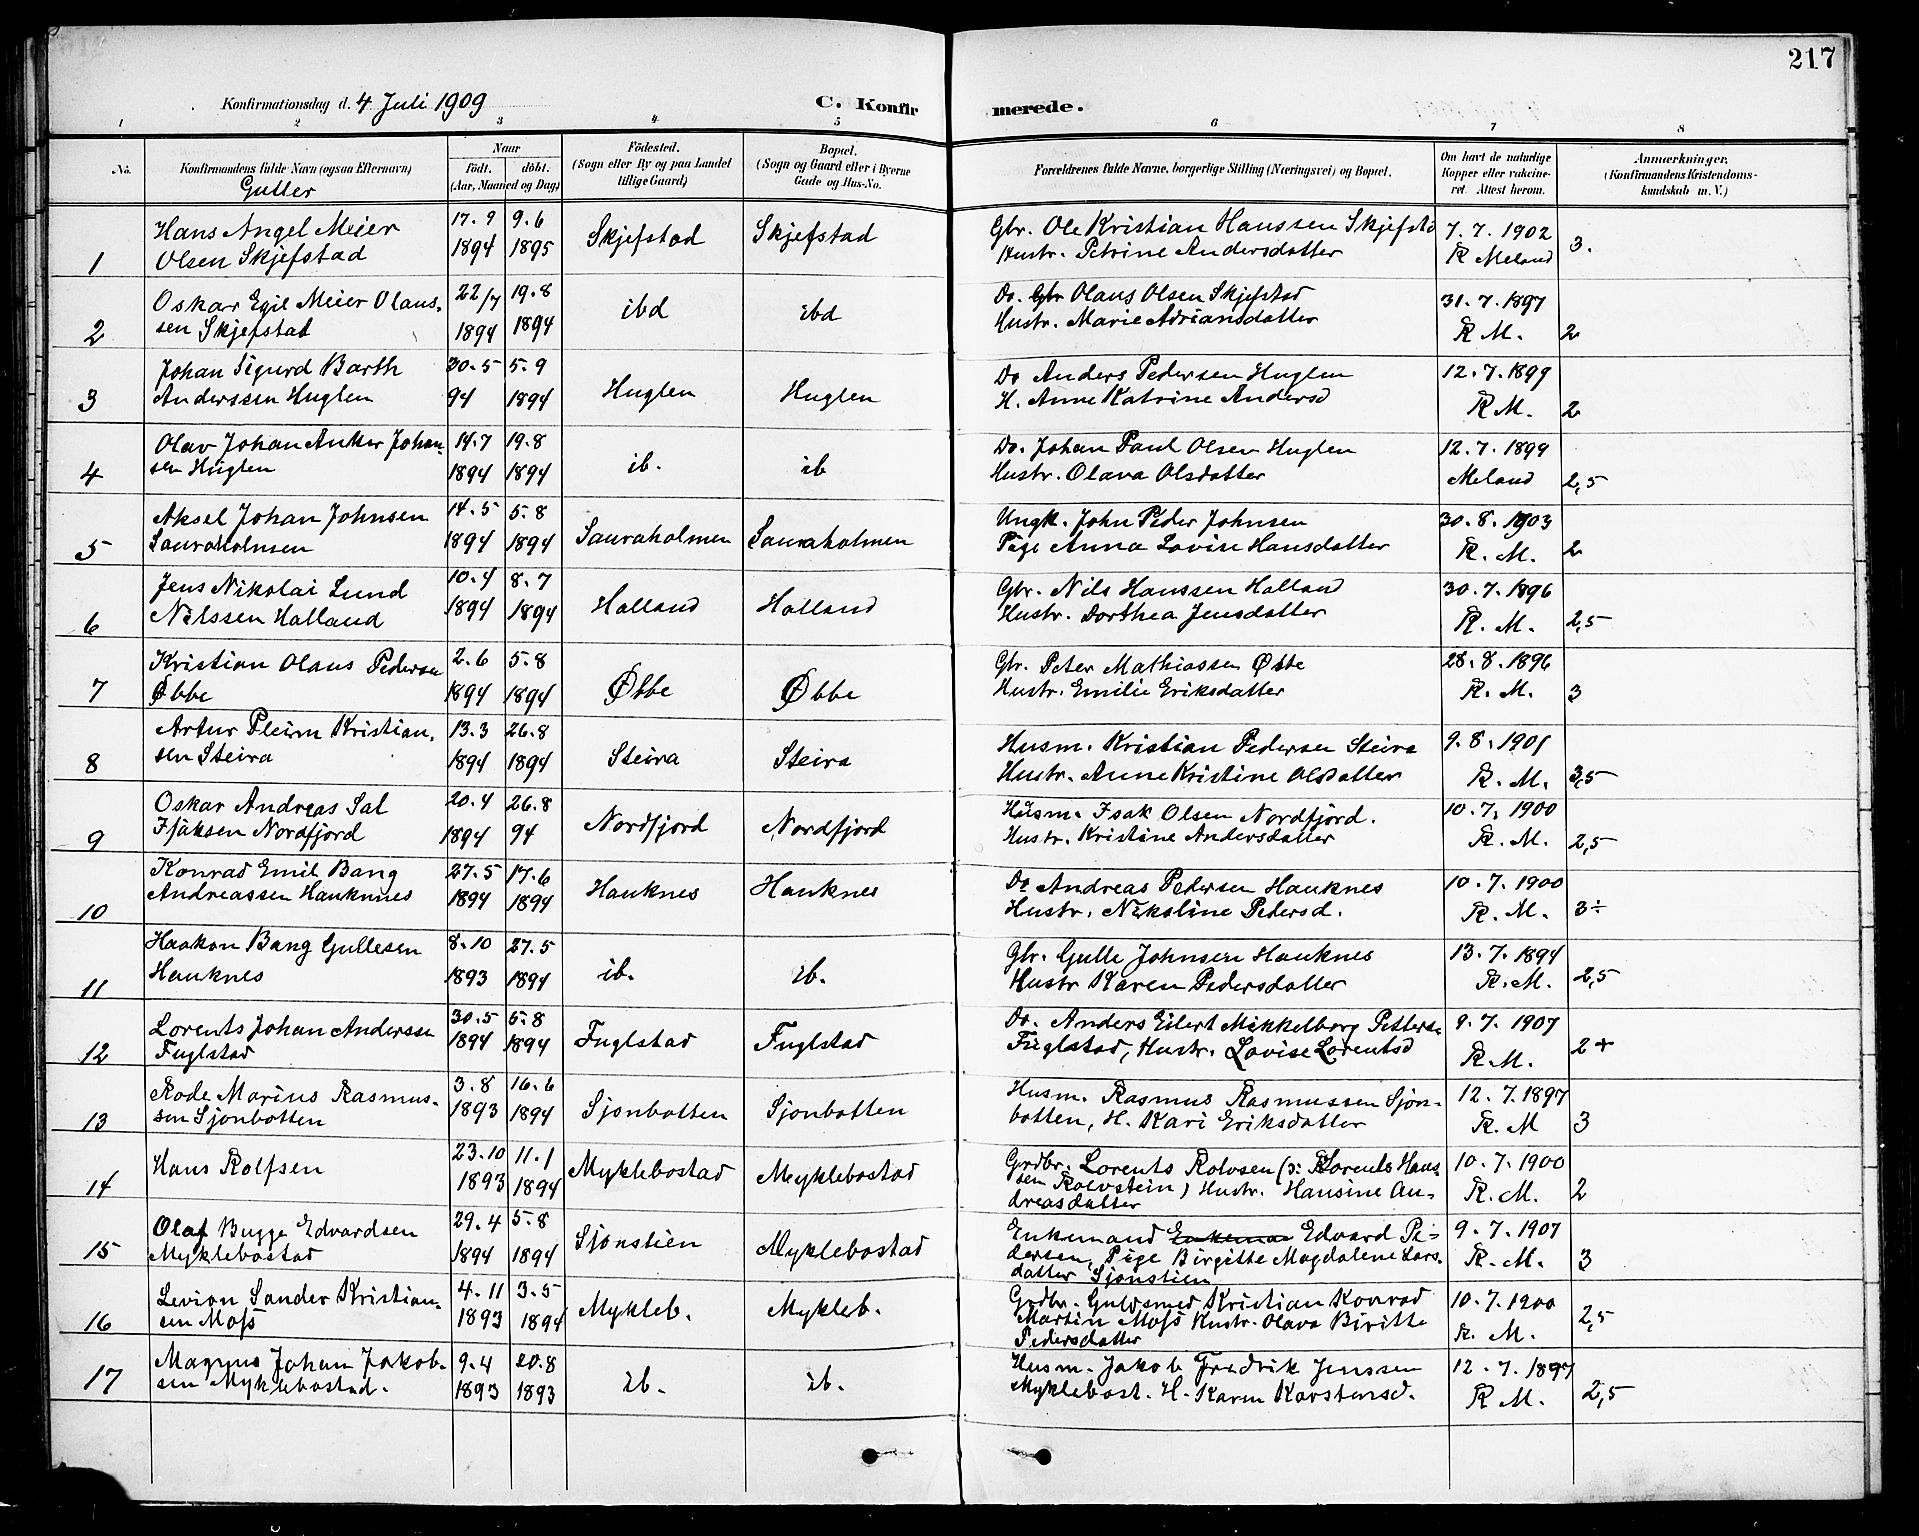 217
Konfirmationsdag d. 4 Juli 1909
C. Konfir merede.
1 2 3 4 5 6 7 8
No. Konfirmandens fulde Navn (ogsaa Efternavn) Naar födt. döbt. (Aar, Maaned og Dag) Födested. (Sogn eller By og paa Landet tillige Gaard) Bopæl. (Sogn og Gaard eller i Byerne Gade og Hus-No. Forældrenes fulde Navne, borgerlige Stilling (Næringsvei) og Bopæl. Om havt de naturlige Kopper eller vakcineret. Attest herom. Anmærkninger, (Konfirmandens Kristendomskundskab m. V.)
Gutter
Hans Angel Meier 17.9 9.6 Skjefstad Skjefstad Gbr. Ole Kristian Hanssen Skjefsta 7.7.1902
1 Olsen Skjefstad 1894 1895 Hustr. Petrine Andersdatter R Meland 3.
Oskar Egil Meier Olaus- 22/7 19.8 ibd ibd Do. Gbr Olaus Olsen Skjefstad 31.7.1897
2 sen Skjefstad 1894 1894 Hustr. Marie Adriansdatter R M. 2
Johan Sigurd Barth 30.5 5.9 Huglen Huglen Do Anders Pedersen Huglen 12.7.1899
3 Anderssen Huglen 94 1894 H. Anne Katrine Andersd R M. 2
Olav Johan Anker Johan- 14.7 19.8 ib. ib Do. Johan Paul Olsen Huglen 12.7.1899
4 sen Huglen 1894 1894 Hustr. Olava Olsdatter Meland 2,5
Aksel Johan Johnsen 14.5 5.8 Sauraholmen Sauraholmen Ungk. John Peder Johnsen 30.8.1903
5 Sauraholmen 1894 1894 Pige Anna Lovise Hansdatter R. M. 2
Jens Nikolai Lund 10.4 8.7 Halland Halland Gbr. Nils Hanssen Halland 30.7.1896
6 Nilssen Halland 1894 1894 Hustr. Dorthea Jensdatter R. M. 2,5
Kristian Olaus Pederse 2.6 5.8 Øbbe Øbbe Gbr. Peter Mathiassen Øbbe 28.8.1896
7 Øbbe 1894 1894 Hustr. Emilie Eriksdatter R. M. 3
Artur Pleim Kristian- 13.3 26.8 Steira Steira Husm. Kristian Pedersen Steira 9.8.1901
8 sen Steira 1894 1894 Hustr. Anne Kristine Olsdatter R. M. 3,5
Oskar Andreas Sal 20.4 26.8 Nordfjord Nordfjord Husm. Isak Olsen Nordfjord. 10.7.1900
9 Isaksen Nordfjord 1894 94 Hustr. Kristine Andersdatter R. M. 2,5
Konrad Emil Bang 27.5 17.6 Hauknes Hauknes Do Andreas Pedersen Hauknes 10.7.1900
10 Andreassen Hauknnes 1894 1894 Hustr. Nikoline Pedersd. R. M. 3÷
Haakon Bang Gullesen 8.10 27.5 ib. ib. Gbr. Gulle Johnsen Hauknes 13.7.1894
11 Hauknes 1893 1894 Hustr Karen Pedersdatter R. M. 2,5
Lorents Johan Anderssen 30.5 5.8 Fuglstad Fuglstad Do. Anders Eilert Mikkelborg Petters- 9.7.1907
12 Fuglstad 1894 1894 Fuglstad, Hustr. Lovise Lorentsd R M. 2+
Rode Marius Rasmus- 3.8 16.6 Sjonbotten Sjonbotten Husm. Rasmus Rasmussen Sjon- 12.7.1897
13 sen Sjonbotten 1893 1894 botten, H. Kari Eriksdatter R. M 3
Hans Rolfsen 23.10 11.1 Myklebostad Myklebostad Grdbr. Lorents Rolvsen (ɔ: Lorents Hans 10.7.1900
14 1893 1894 sen Rolvstein) Hustr. Hansine An- R. M. 2
dreasdatter
Olaf Bugge Edvardsen 29.4 5.8 Sjonstien Myklebostad Enkemand Enkeman Edvard Pe- 9.7.1907
15 Myklebostad 1894 1894 dersen, Pige Birgitte Magdalene Lars- R. M. 3
datter Sjonstien
Levion Sander Kristian- 4.11 3.5 Mykleb. Mykleb. Grdbr. Guldsmed Kristian Konrad 10.7.1900
16 sen Moss 1893 1894 Martin Moss Hustr. Olava Biritte R. M. 2,5
Pedersdatter
Magnus Johan Jakob- 9.4 20.8 ib. ib. Husm. Jakob Fredrik Jenssen 12.7.1897
17 sen Myklebostad. 1893 1893 Myklebost. H. Karen Karstensd. R M. 2,5